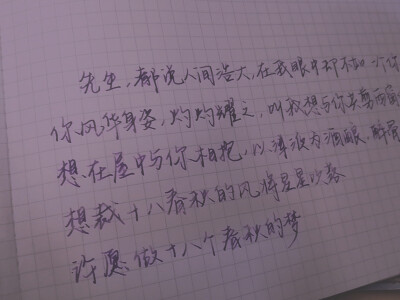 先生,都说人间浩大,在我眼中却不如一个你
你风华身姿,灼灼耀之,叫我想与你共
想在屋中与你相拥,以津液为酒酿,醉
想裁十八春秋的风将星星少客
许愿做十八个春秋的梦